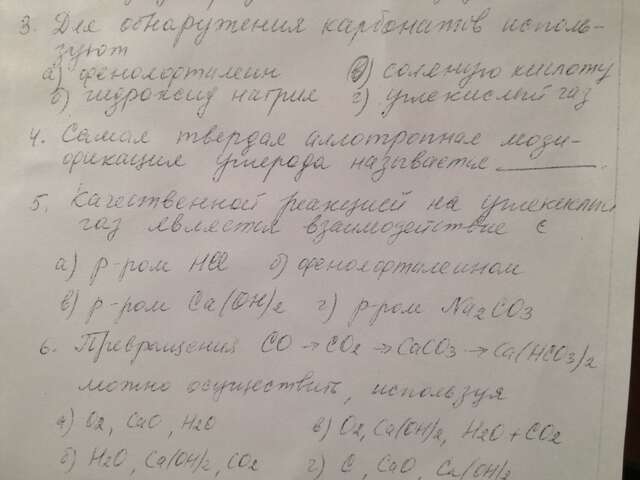 3. Для обнаружения карбонатов исполь-
зуют
а) фенолфталеин в) соляную кислоту
б) гидроксид натрия г) углекислый газ
4. Самая твердая аллотропная моди-
фикация углерода называется ______.
5. Качественной реакцией на углекислый
газ является взаимодействие с
а) р-ром HCl б) фенолфталеином
в) р-ром Ca(OH)2 г) р-ром Na2CO3
6. Превращения CO → CO2 → CaCO3 → Ca(HCO3)2
можно осуществить, используя
а) O2, CaO, H2O в) O2, Ca(OH)2, H2O + CO2
б) H2O, Ca(OH)2, CO2 г) C, CaO, Ca(OH)2